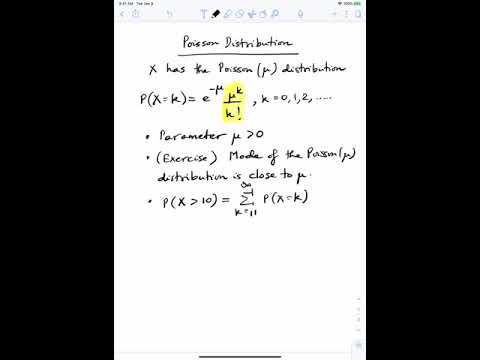 9:41 AM Tue Jan 8
100%
Poisson Distribution
X has the Poisson(μ) distribution
P(X=k) = e^{-μ} μ^k / k! , k = 0, 1, 2, .....
• Parameter μ > 0
• (Exercise) Mode of the Poisson(μ)
distribution is close to μ.
• P(X > 10) = ∑_{k=11}^{∞} P(X=k)